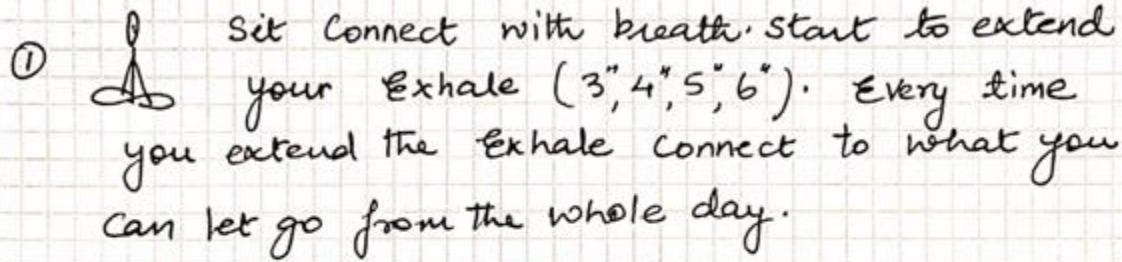 ① Sit Connect with breath. Start to extend
your Exhale (3", 4", 5", 6"). Every time
you extend the Exhale Connect to what you
can let go from the whole day.